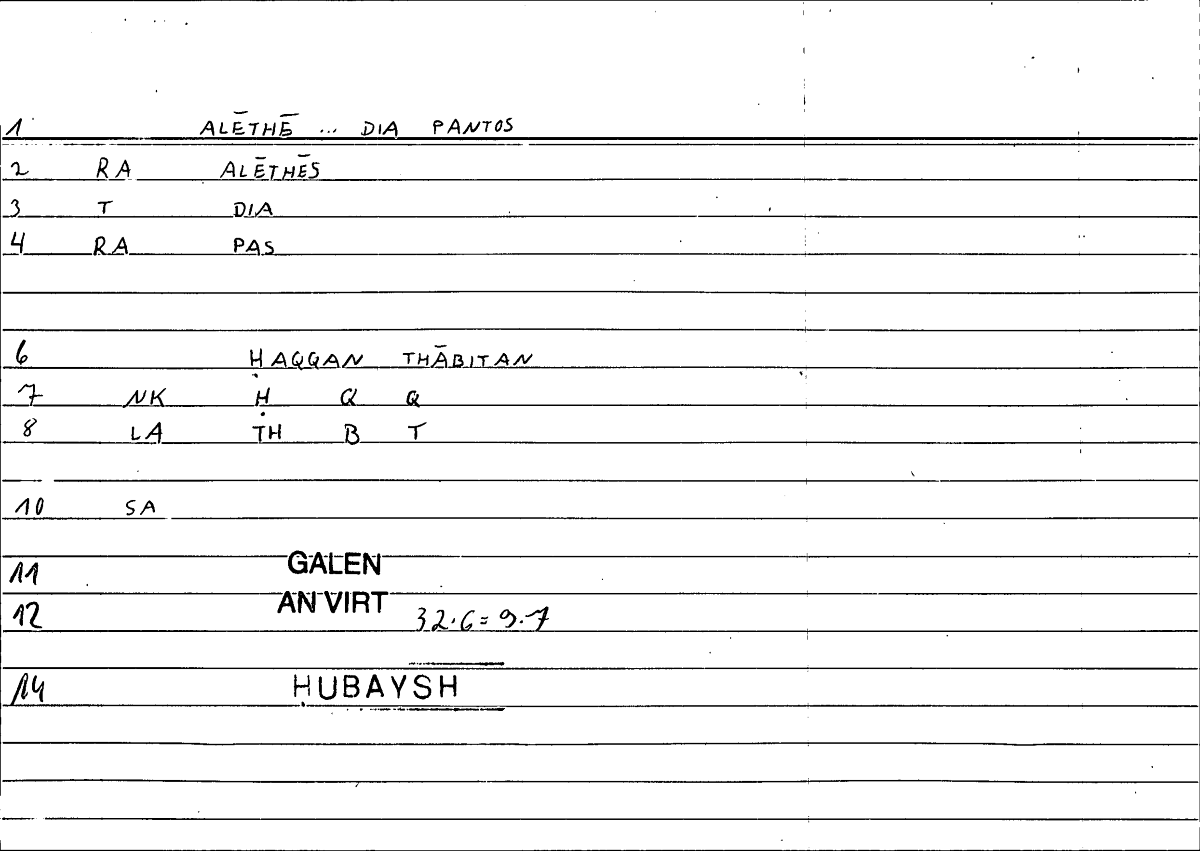 1 ALĒTHĒ ... DIA PANTOS
2 RA ALĒTHĒS
3 T DIA
4 RA PAS
6 ḤAQQAN THĀBITAN
7 NK Ḥ Q Q
8 LA TH B T
10 SA
11 GALEN
12 AN VIRT 32.6=9.7
14 ḤUBAYSH